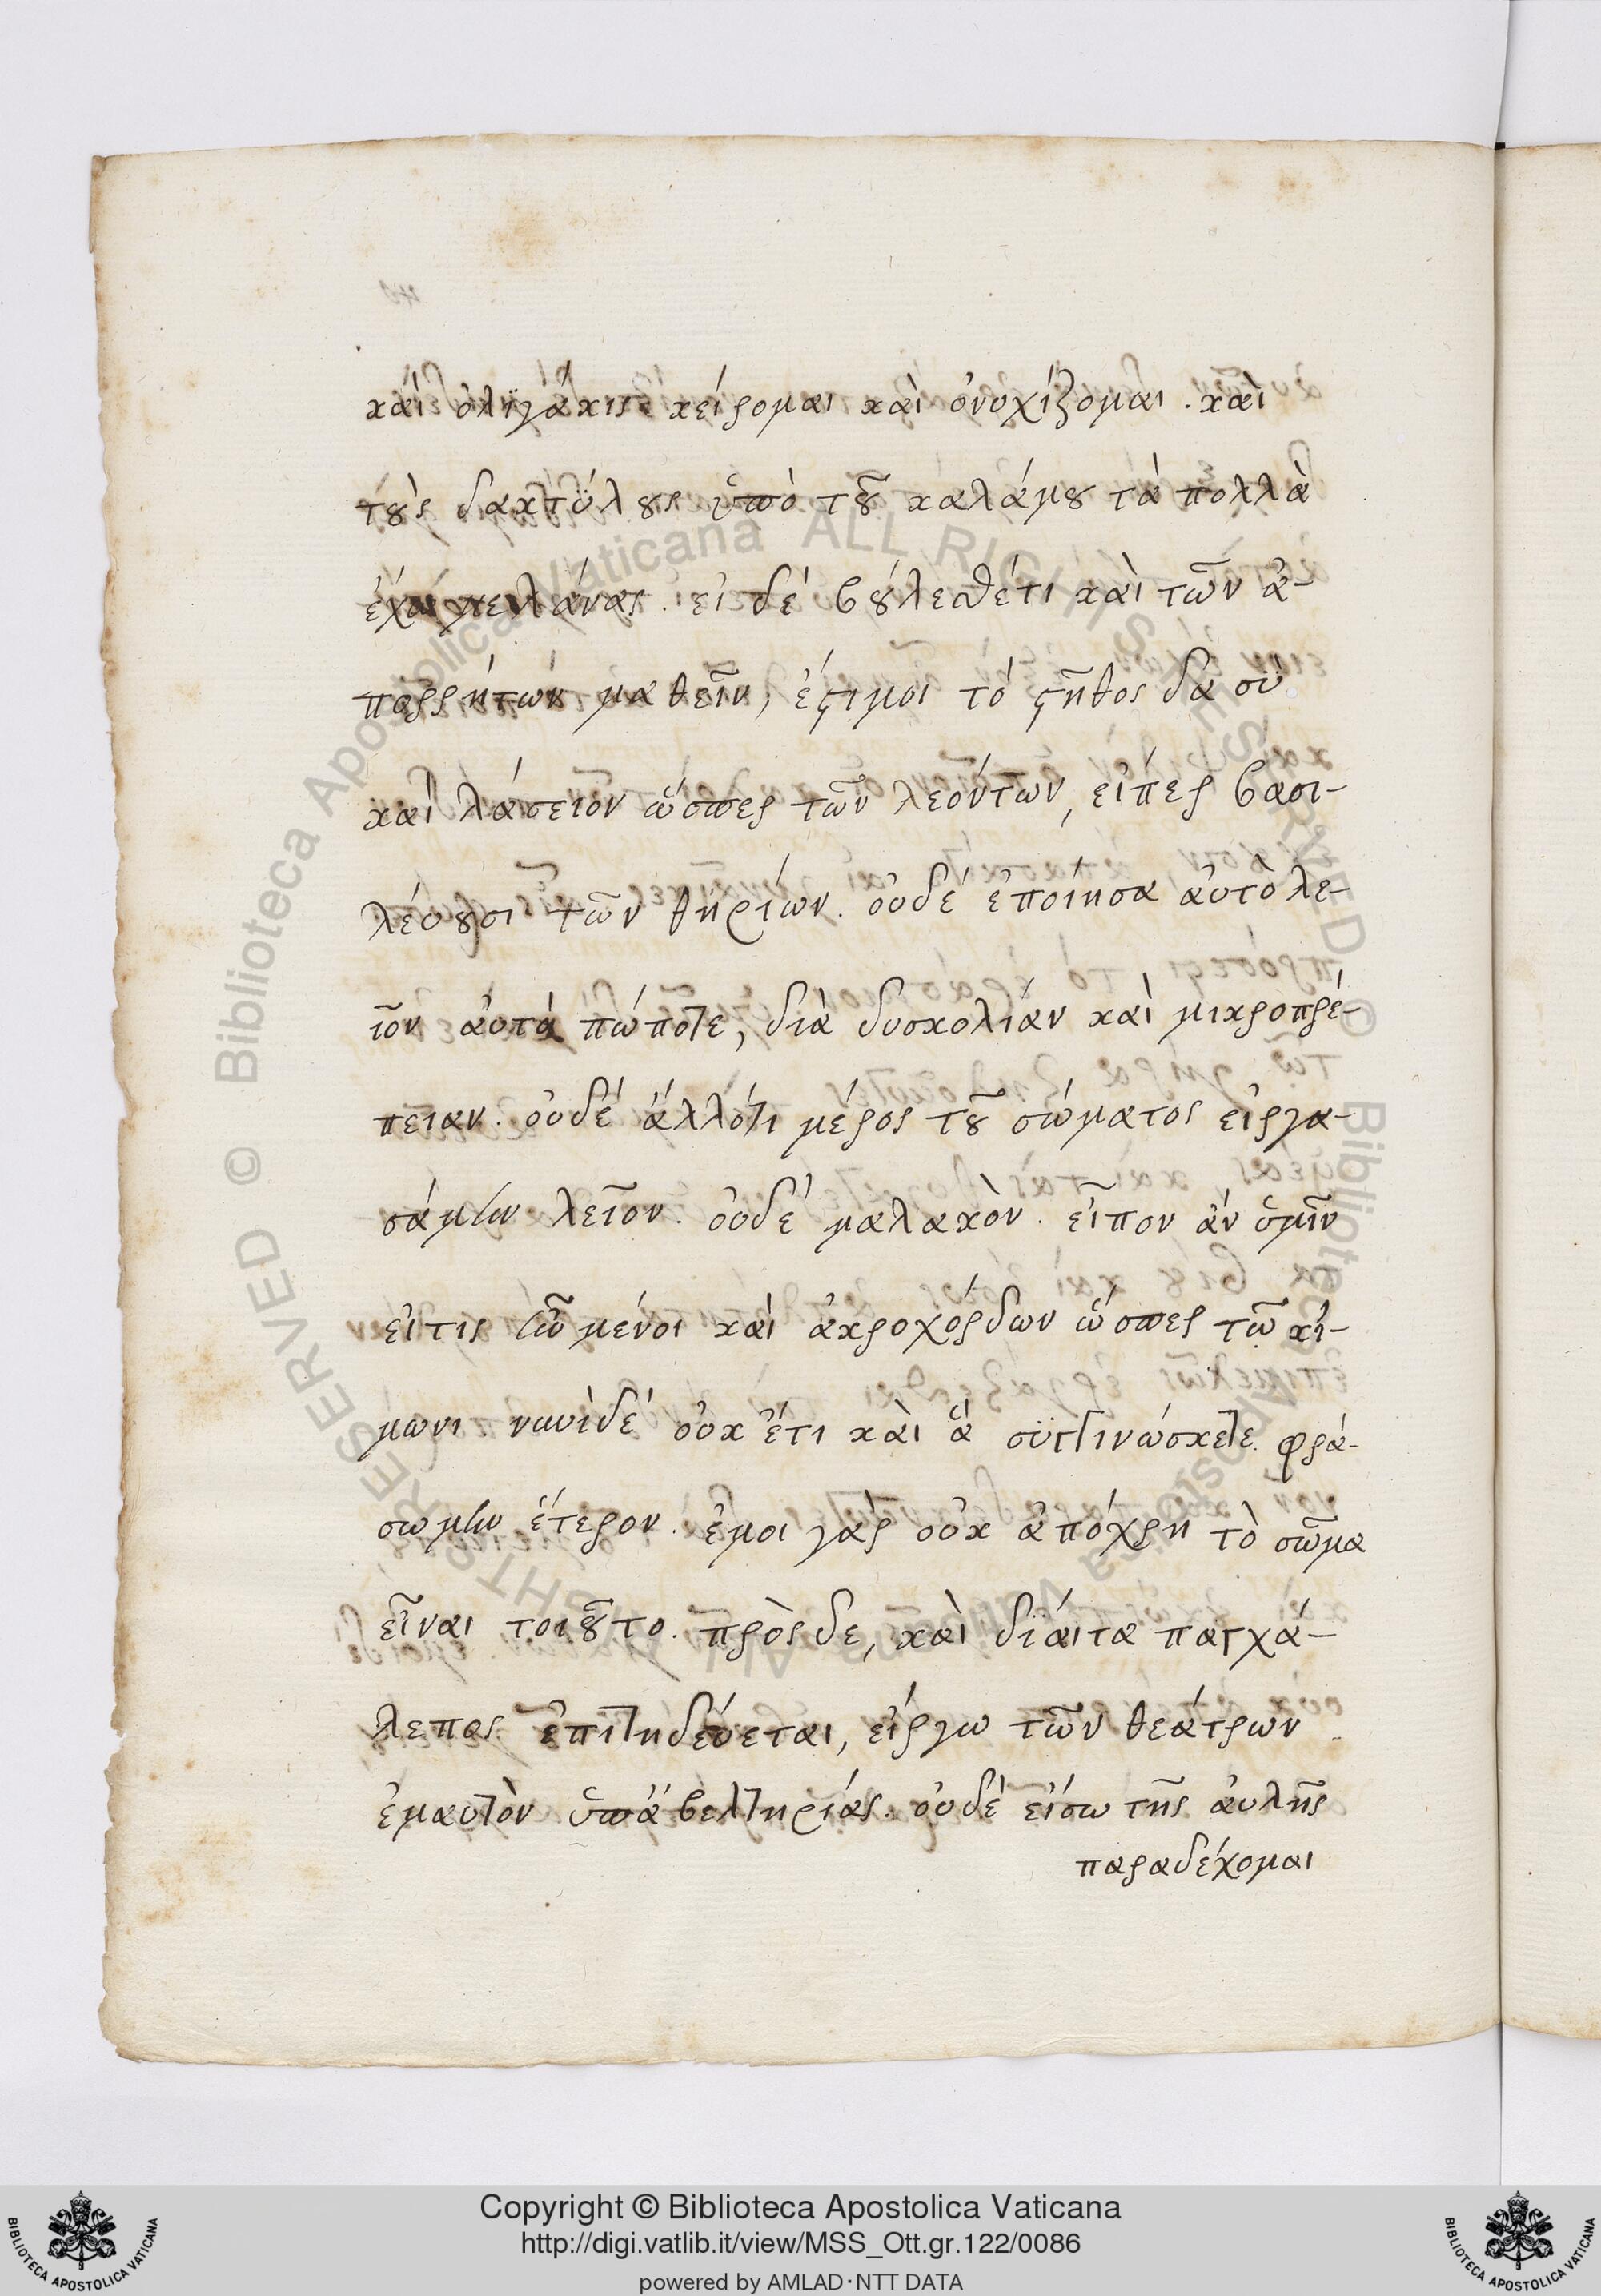 καὶ ὀλϊγάκις κείρομαι καὶ ὀνυχίζομαι. καὶ
τοὺς δακτύλους ὑπὸ τοῦ καλάμου τὰ πολλὰ
ἔχω μελάνας. εἰ δέ βούλεσθέτι καὶ τῶν ἀ-
πορρήτων μαθεῖν, ἔστιμοι τό στῆθος δα σὺ
καὶ λάσειον ὥσπερ τῶν λεόντων, εἴπερ βασι-
λέουσι τῶν θηρίων. οὐδέ ἐποίησα αὐτὸ λε-
ῖον αὐτὰ πώποτε, διὰ δυσκολίαν καὶ μικροπρέ-
πειαν. οὐδέ ἄλλότι μέρος τοῦ σώματος εἰργα-
σάμην λεῖον. οὐδέ μαλακὸν. εἶπον ἄν ὑμῖν
εἴτις ἦν μένοι καὶ ἀκροχόρδων ὥσπερ τῶ κί-
μωνι νυνὶδέ οὐκ ἔτι καὶ ἅ συγγινώσκετε. φρά-
σωμὴν ἕτερον. ἐμοι γάρ οὐκ ἀπόχρη τὸ σῶμα
εἶναι τοιοῦτο. πρὸς δε, καὶ δίαιτα παγχά-
λεπος ἐπιτηδεύεται, εἴργω τῶν θεάτρων
ἐμαυτὸν ὑπἀβελτηρίας. οὐδὲ εἴσω τῆς αὐλῆς
παραδέχομαι
Copyright © Biblioteca Apostolica Vaticana
http://digi.vatlib.it/view/MSS_Ott.gr.122/0086
powered by AMLAD·NTT DATA
BIBLIOTECA APOSTOLICA VATICANA
BIBLIOTECA APOSTOLICA VATICANA